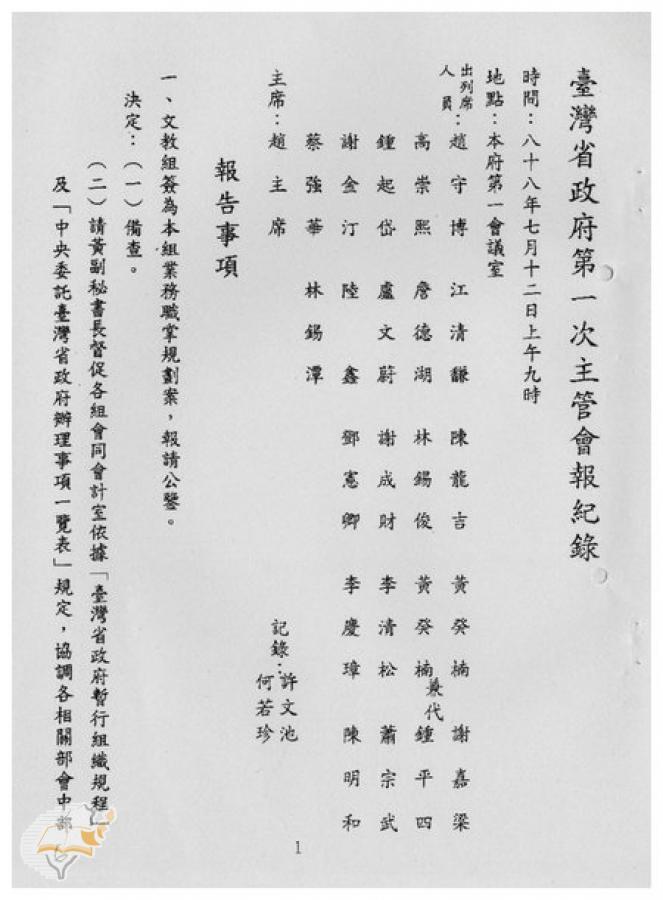 臺灣省政府第一次主管會報紀錄
時間：八十八年七月十二日上午九時
地點：本府第一會議室
出列席人員：趙守博　江清馦　陳龍吉　黃癸楠　謝嘉梁
高崇熙　詹德湖　林錫俊　黃癸楠兼代　鍾平四
鍾起岱　盧文蔚　謝成財　李清松　蕭宗武
謝金汀　陸鑫　鄧憲卿　李慶璋　陳明和
蔡強華　林錫潭
主席：趙主席　記錄：許文池
何若珍
報告事項
一、文教組簽為本組業務職掌規劃案，報請公鑒。
決定：（一）備查。
（二）請黃副秘書長督促各組會同會計室依據「臺灣省政府暫行組織規程」
及「中央委託臺灣省政府辦理事項一覽表」規定，協調各相關部會中部
1